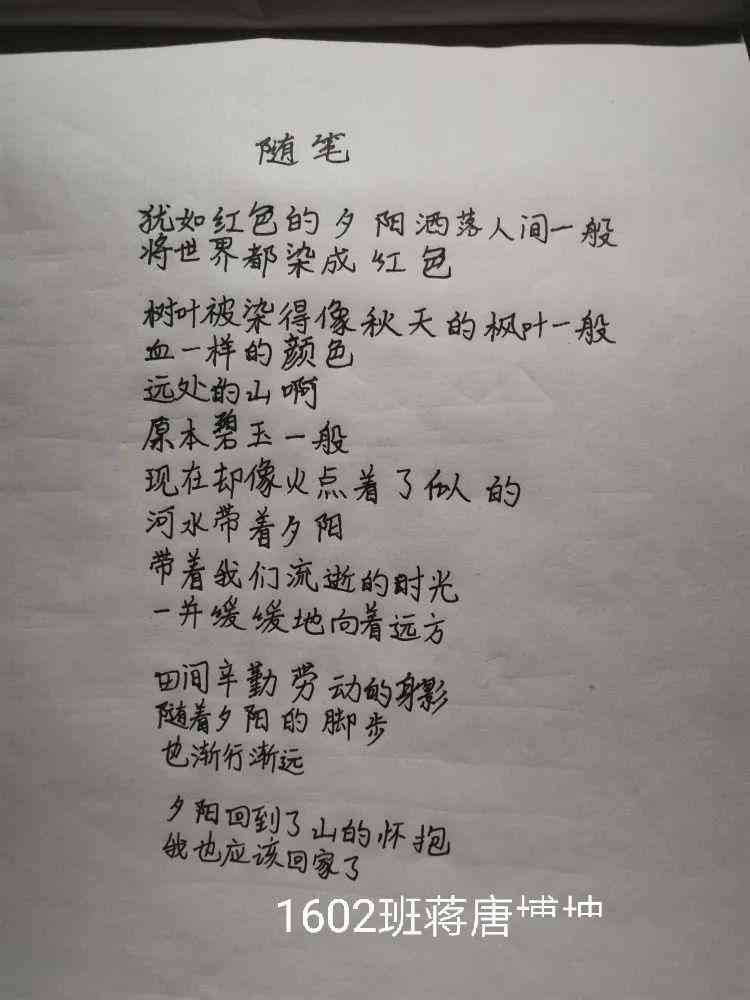 随笔
犹如红色的夕阳洒落人间一般
将世界都染成红色
树叶被染得像秋天的枫叶一般
血一样的颜色
远处的山啊
原本碧玉一般
现在却像火点着了似的
河水带着夕阳
带着我们流逝的时光
一并缓缓地向着远方
田间辛勤劳动的身影
随着夕阳的脚步
也渐行渐远
夕阳回到了山的怀抱
我也应该回家了
1602班蒋唐